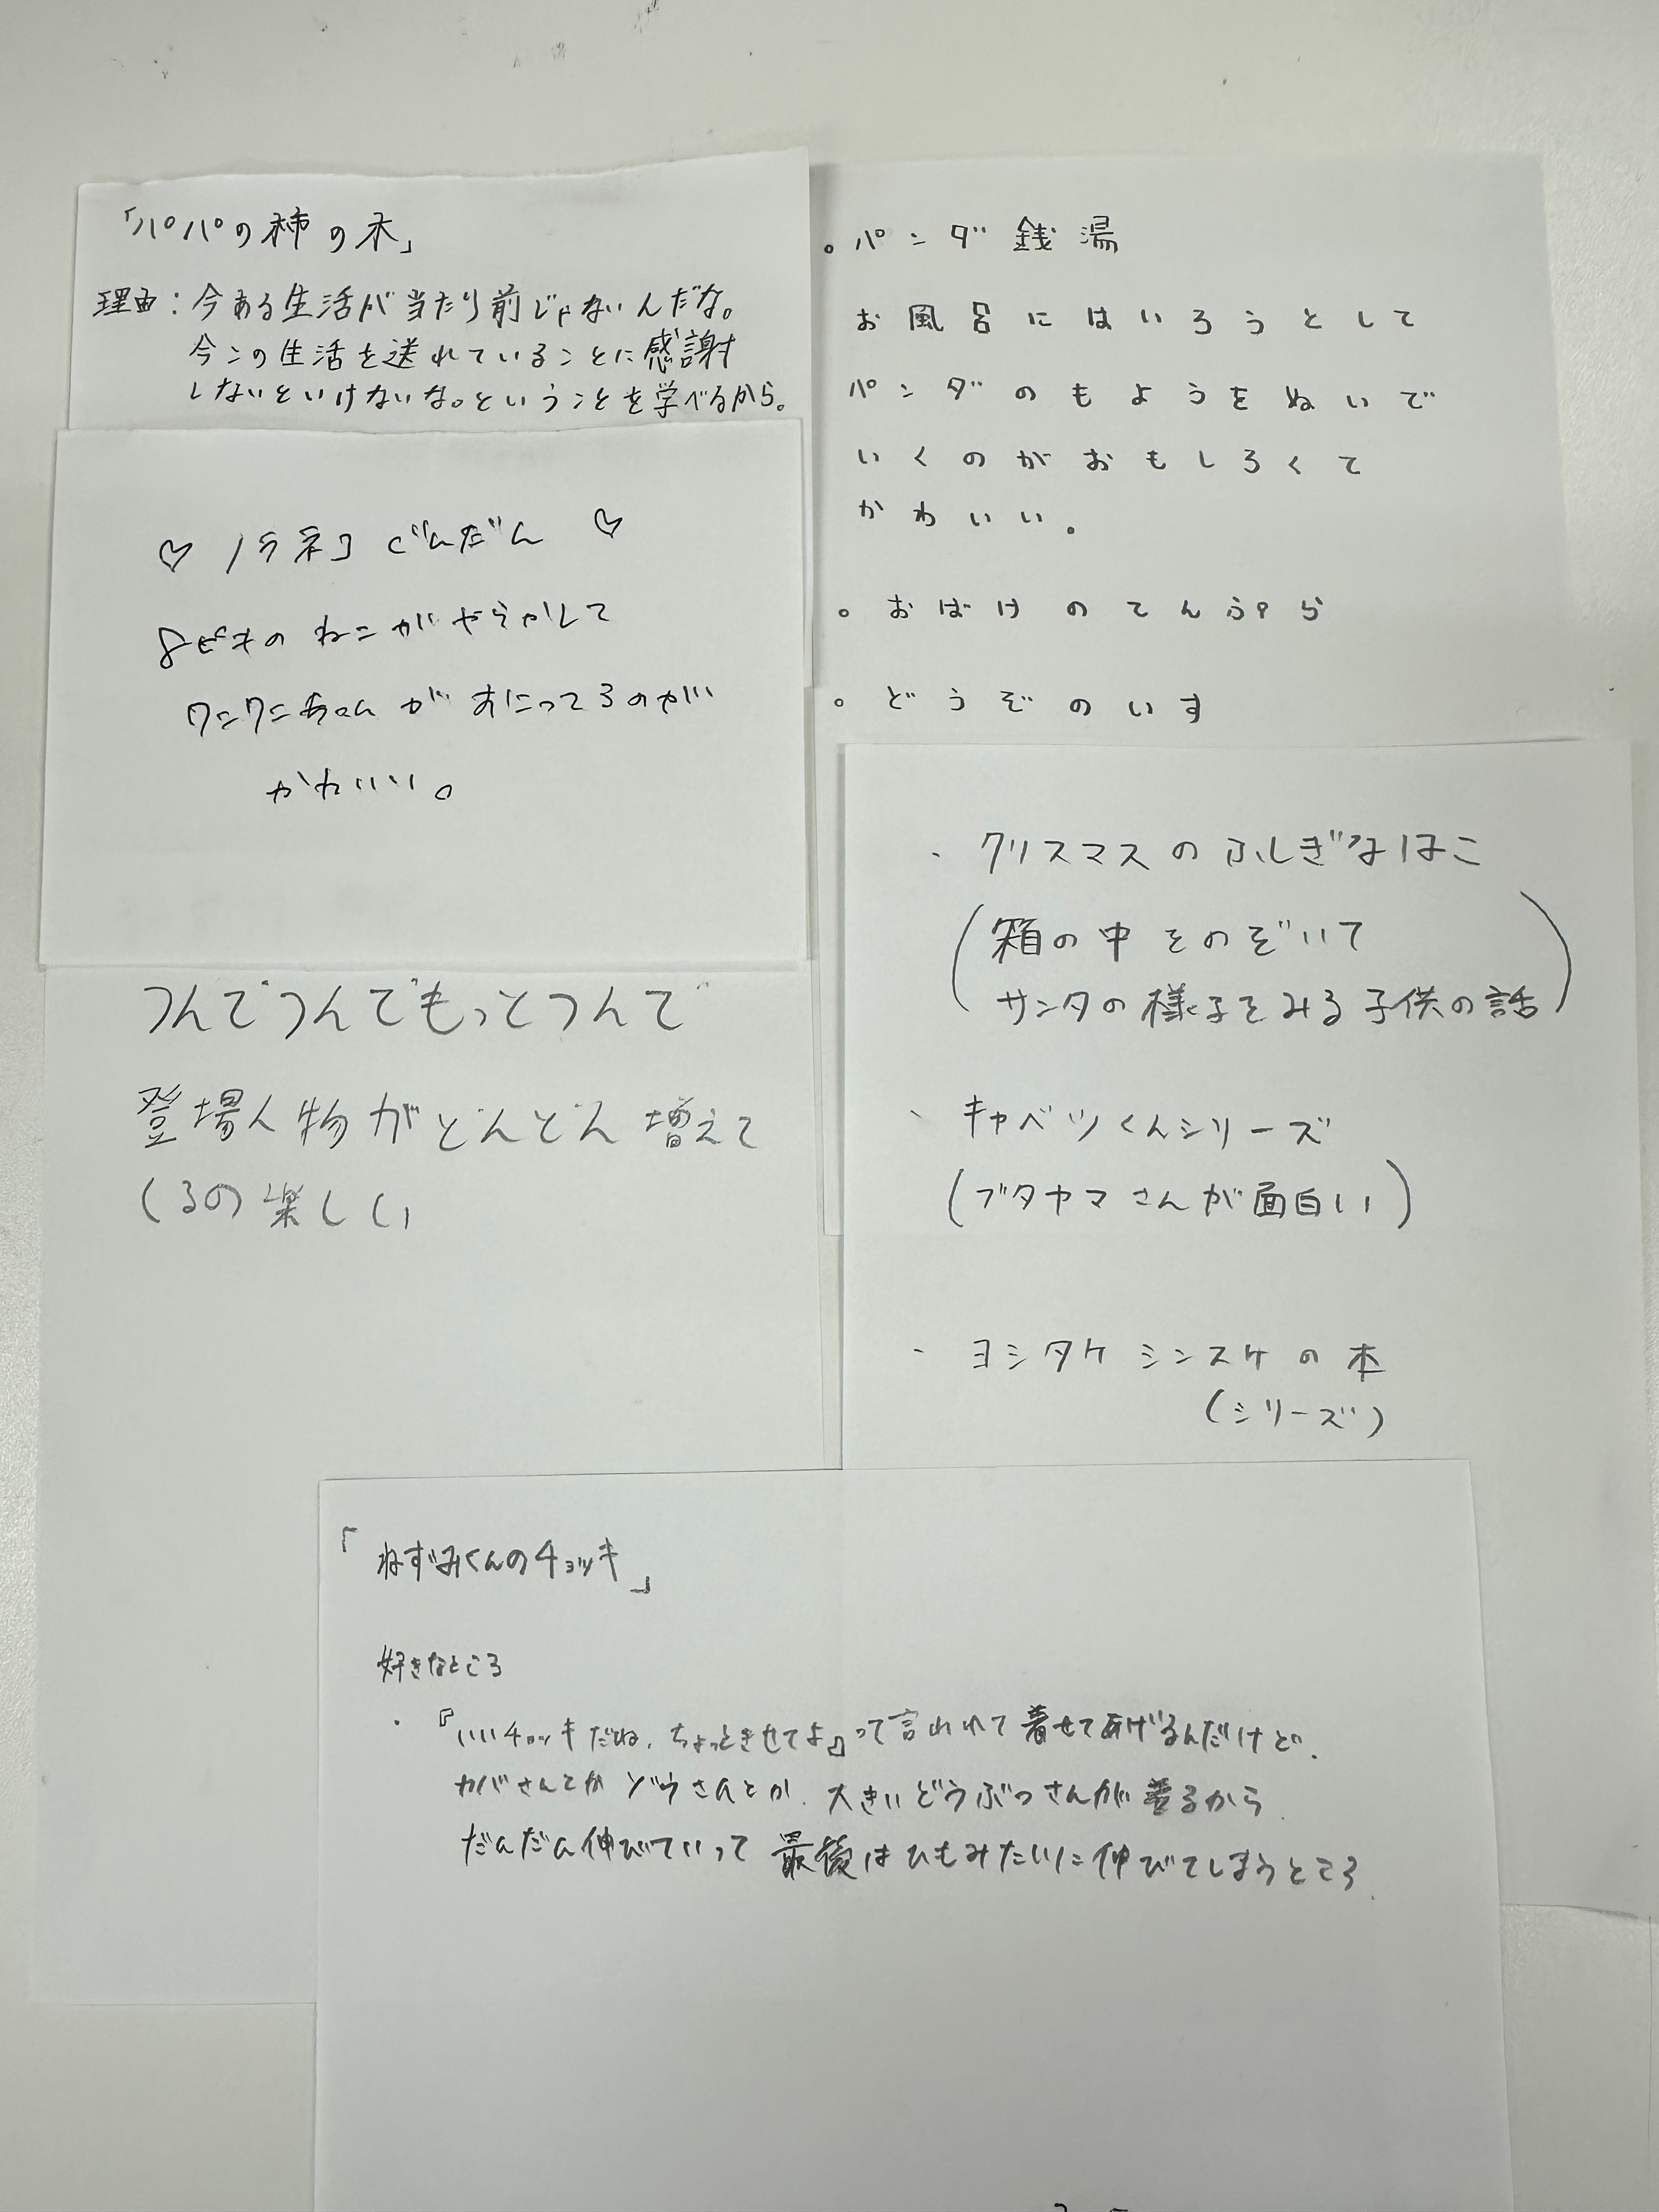 「パパの柿の木」
理由：今ある生活が当たり前じゃないんだな。
今この生活を送れていることに感謝
しないといけないな。ということを学べるから。
♡ ノラネコぐんだん ♡
8ぴきのねこがやらかして
ワンワンちゃんがおこってるのが
かわいい。
。パンダ銭湯
お風呂にはいろうとして
パンダのもようをぬいで
いくのがおもしろくて
かわいい。
。おばけのてんぷら
。どうぞのいす
つんでつんでもっとつんで
登場人物がどんどん増えて
くるの楽しい
・クリスマスのふしぎなはこ
(箱の中をのぞいて
サンタの様子をみる子供の話)
・キャベツくんシリーズ
(ブタヤマさんが面白い)
・ヨシタケシンスケの本
(シリーズ)
「ねずみくんのチョッキ」
好きなところ
・『いいチョッキだね、ちょっときせてよ』って言われて着せてあげるんだけど、
カバさんとかゾウさんとか、大きいどうぶつさんが着るから、
だんだん伸びていって最後はひもみたいに伸びてしまうところ、